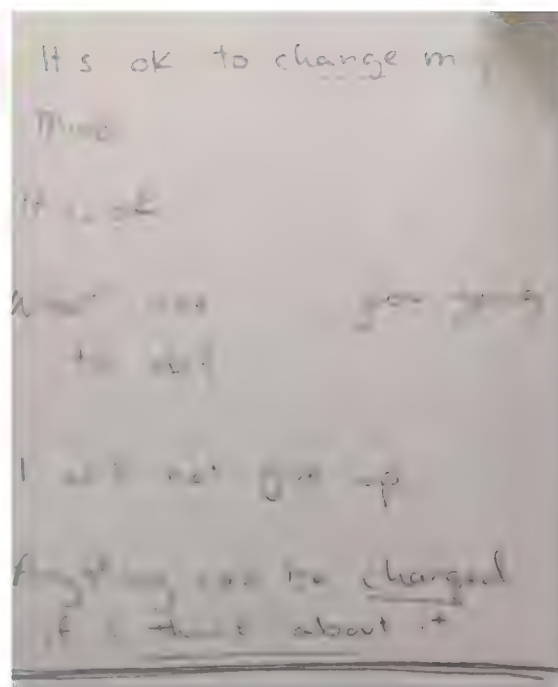 It s ok to change m
Mind
It is ok
you going
to do?
I will not give up
Anything can be changed
if I think about it